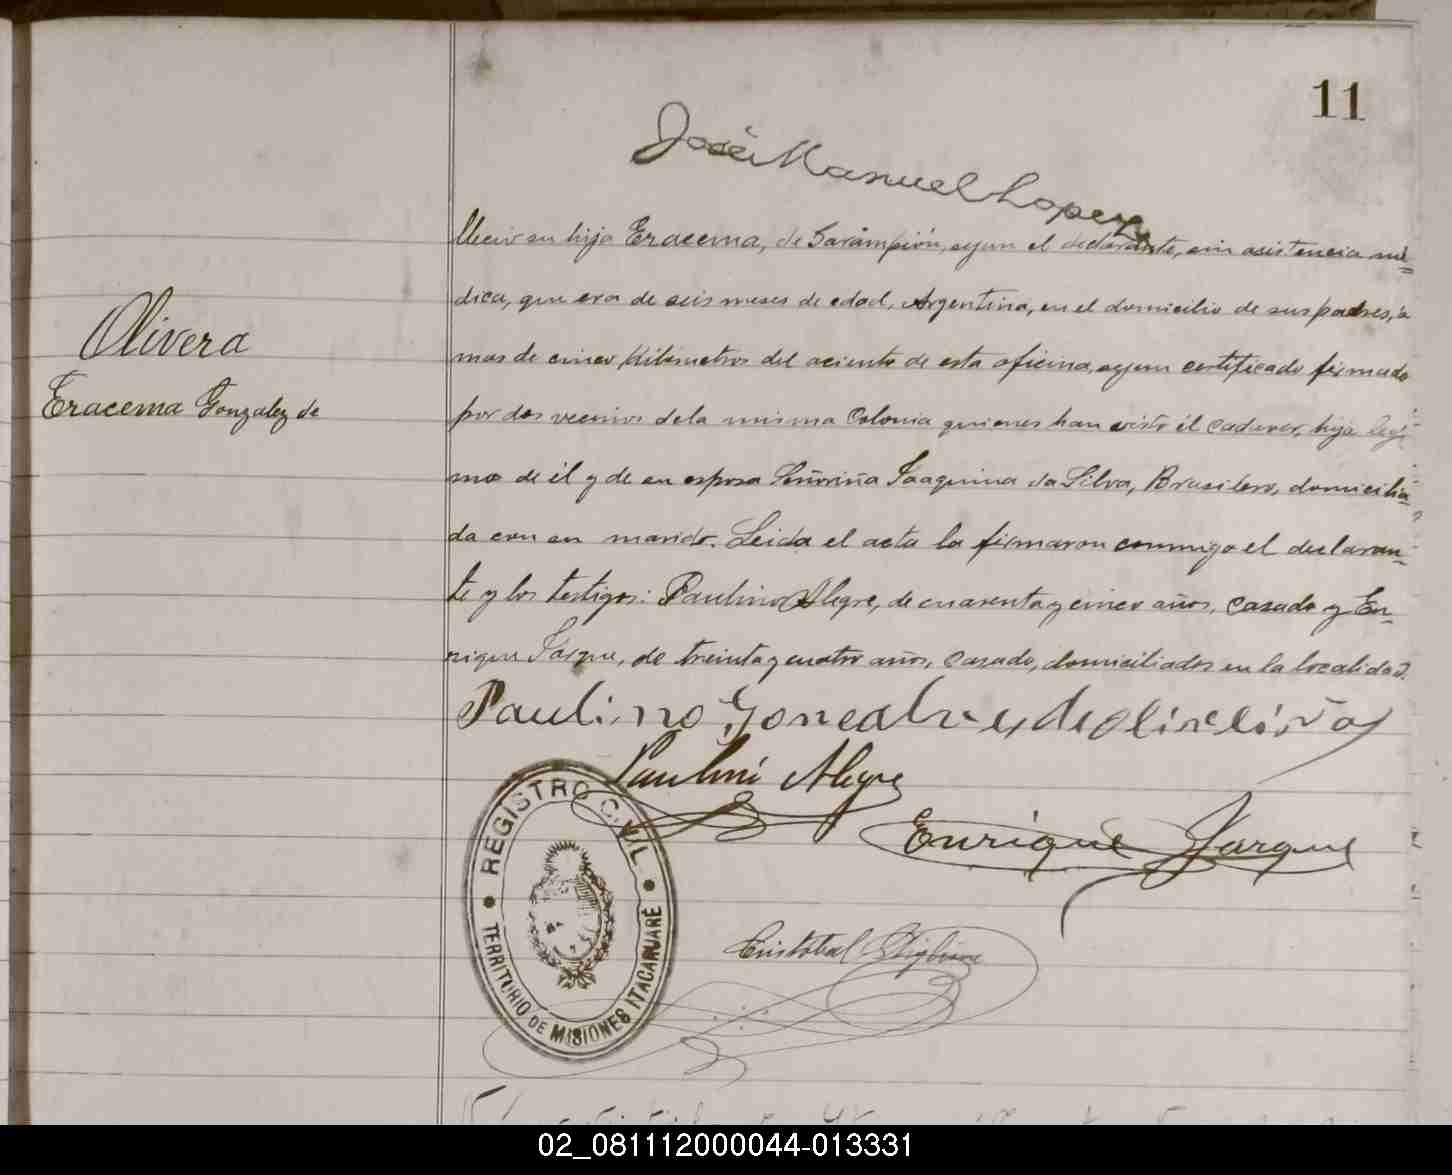 11
José Manuel Lopez
lleció su hija Eracema, de Sarampión, segun el declarante, sin asistencia mé=
dica, que era de seis meses de edad, Argentina, en el domicilio de sus padres, a
mas de cinco Kilómetros del aciento de esta oficina, segun certificado firmado
por dos vecinos de la misma Colonia quienes han visto él cadaver, hija
Olivera
Eracema Gonzalez de
ma de él y de su esposa Señoriña Joaquina da Silva, Brasilera, domicilia=
da con su marido. Leida el acta la firmaron conmigo el declaran=
te y los testigos: Paulino Alegre, de cuarenta y cinco años, casado y En=
rique Jarque, de treinta y cuatro años, casado, domiciliados en la localidad.
Paulino
Paulino Alegre
Enrique Jarque
Cristobal
REGISTRO CIVIL
TERRITORIO DE MISIONES ITACARUARÉ
02_081112000044-013331